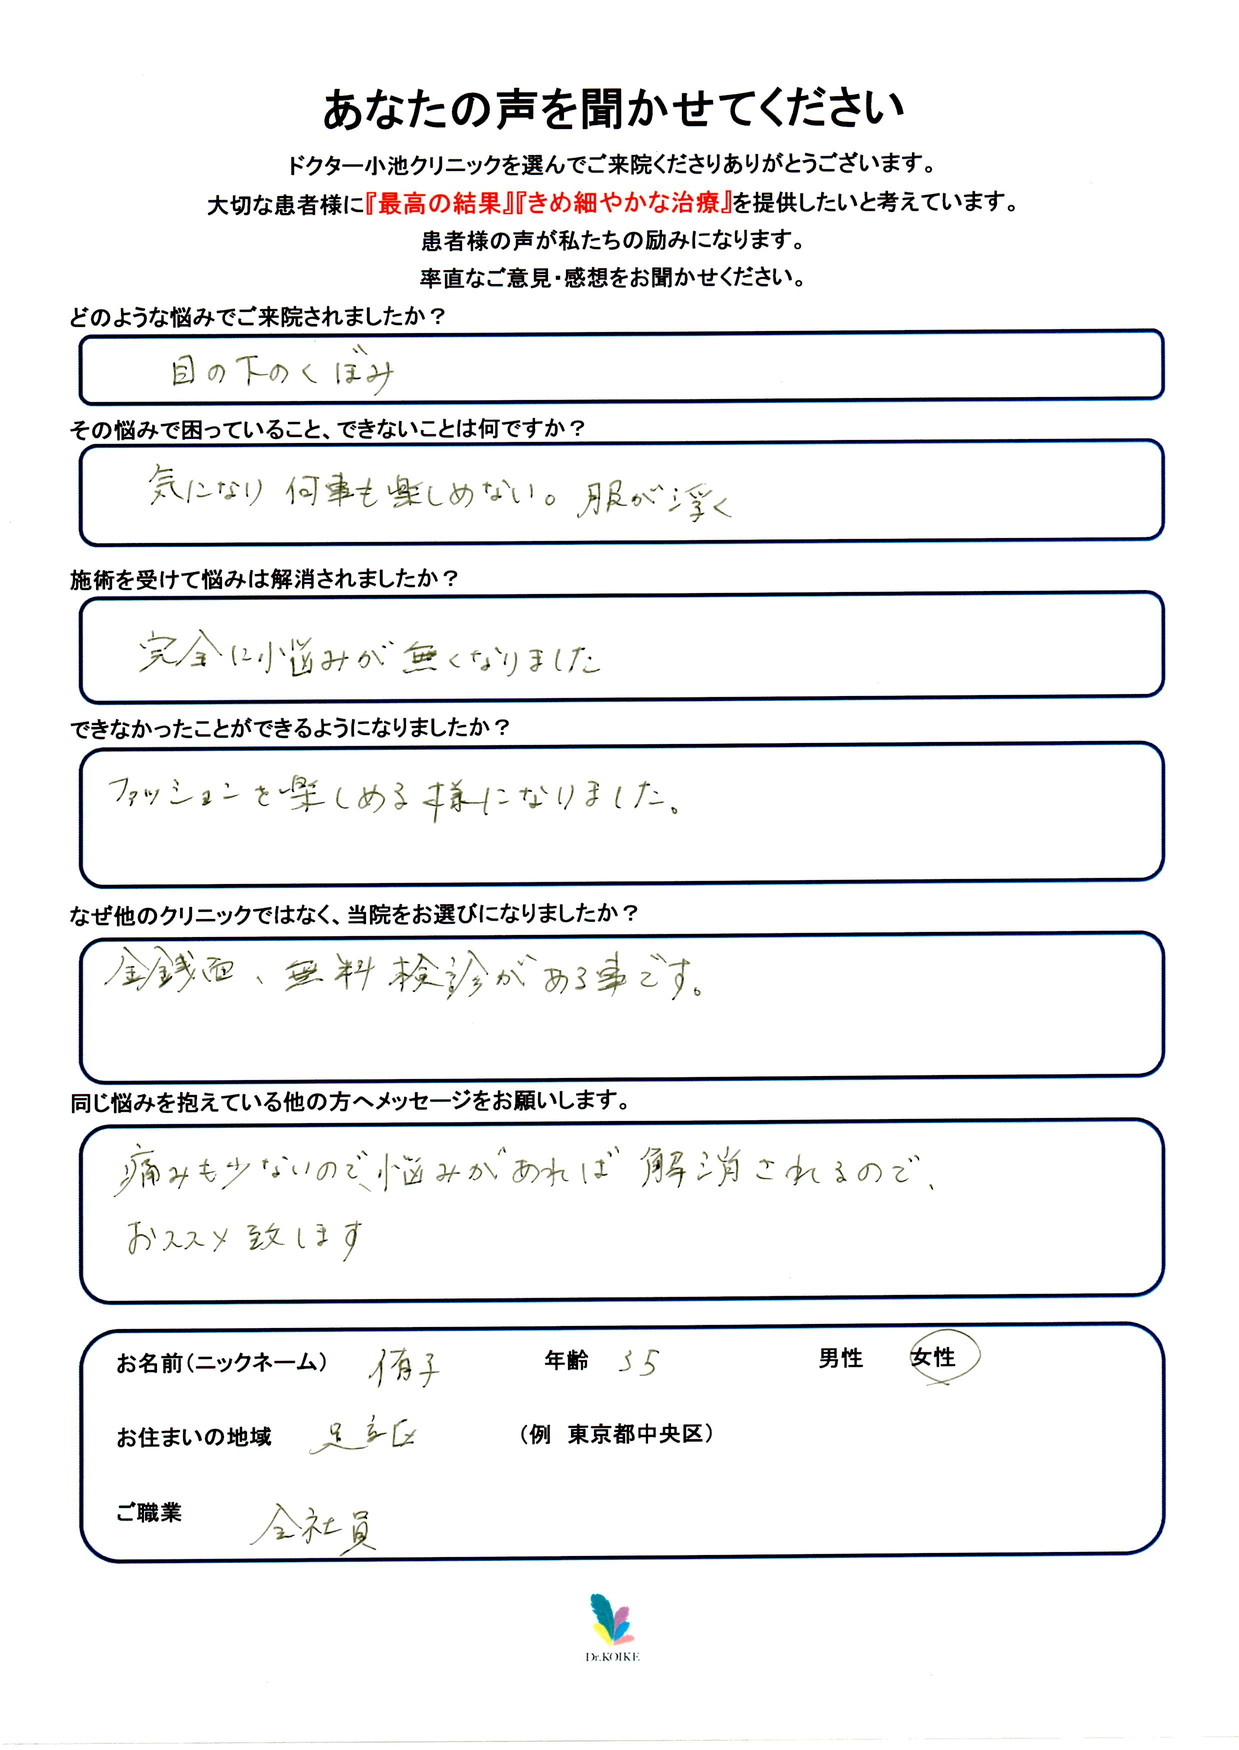 あなたの声を聞かせてください
ドクター小池クリニックを選んでご来院くださりありがとうございます。
大切な患者様に『最高の結果』『きめ細やかな治療』を提供したいと考えています。
患者様の声が私たちの励みになります。
率直なご意見・感想をお聞かせください。
どのような悩みでご来院されましたか？
目の下のくぼみ
その悩みで困っていること、できないことは何ですか？
気になり何事も楽しめない。服が浮く
施術を受けて悩みは解消されましたか？
完全に悩みが無くなりました
できなかったことができるようになりましたか？
ファッションを楽しめる様になりました。
なぜ他のクリニックではなく、当院をお選びになりましたか？
金銭面、無料検診がある事です。
同じ悩みを抱えている他の方へメッセージをお願いします。
痛みも少ないので、悩みがあれば解消されるので、
おススメ致します
お名前（ニックネーム） 侑子 年齢 35 男性 女性
お住まいの地域 足立区 （例 東京都中央区）
ご職業 会社員
Dr.KOIKE